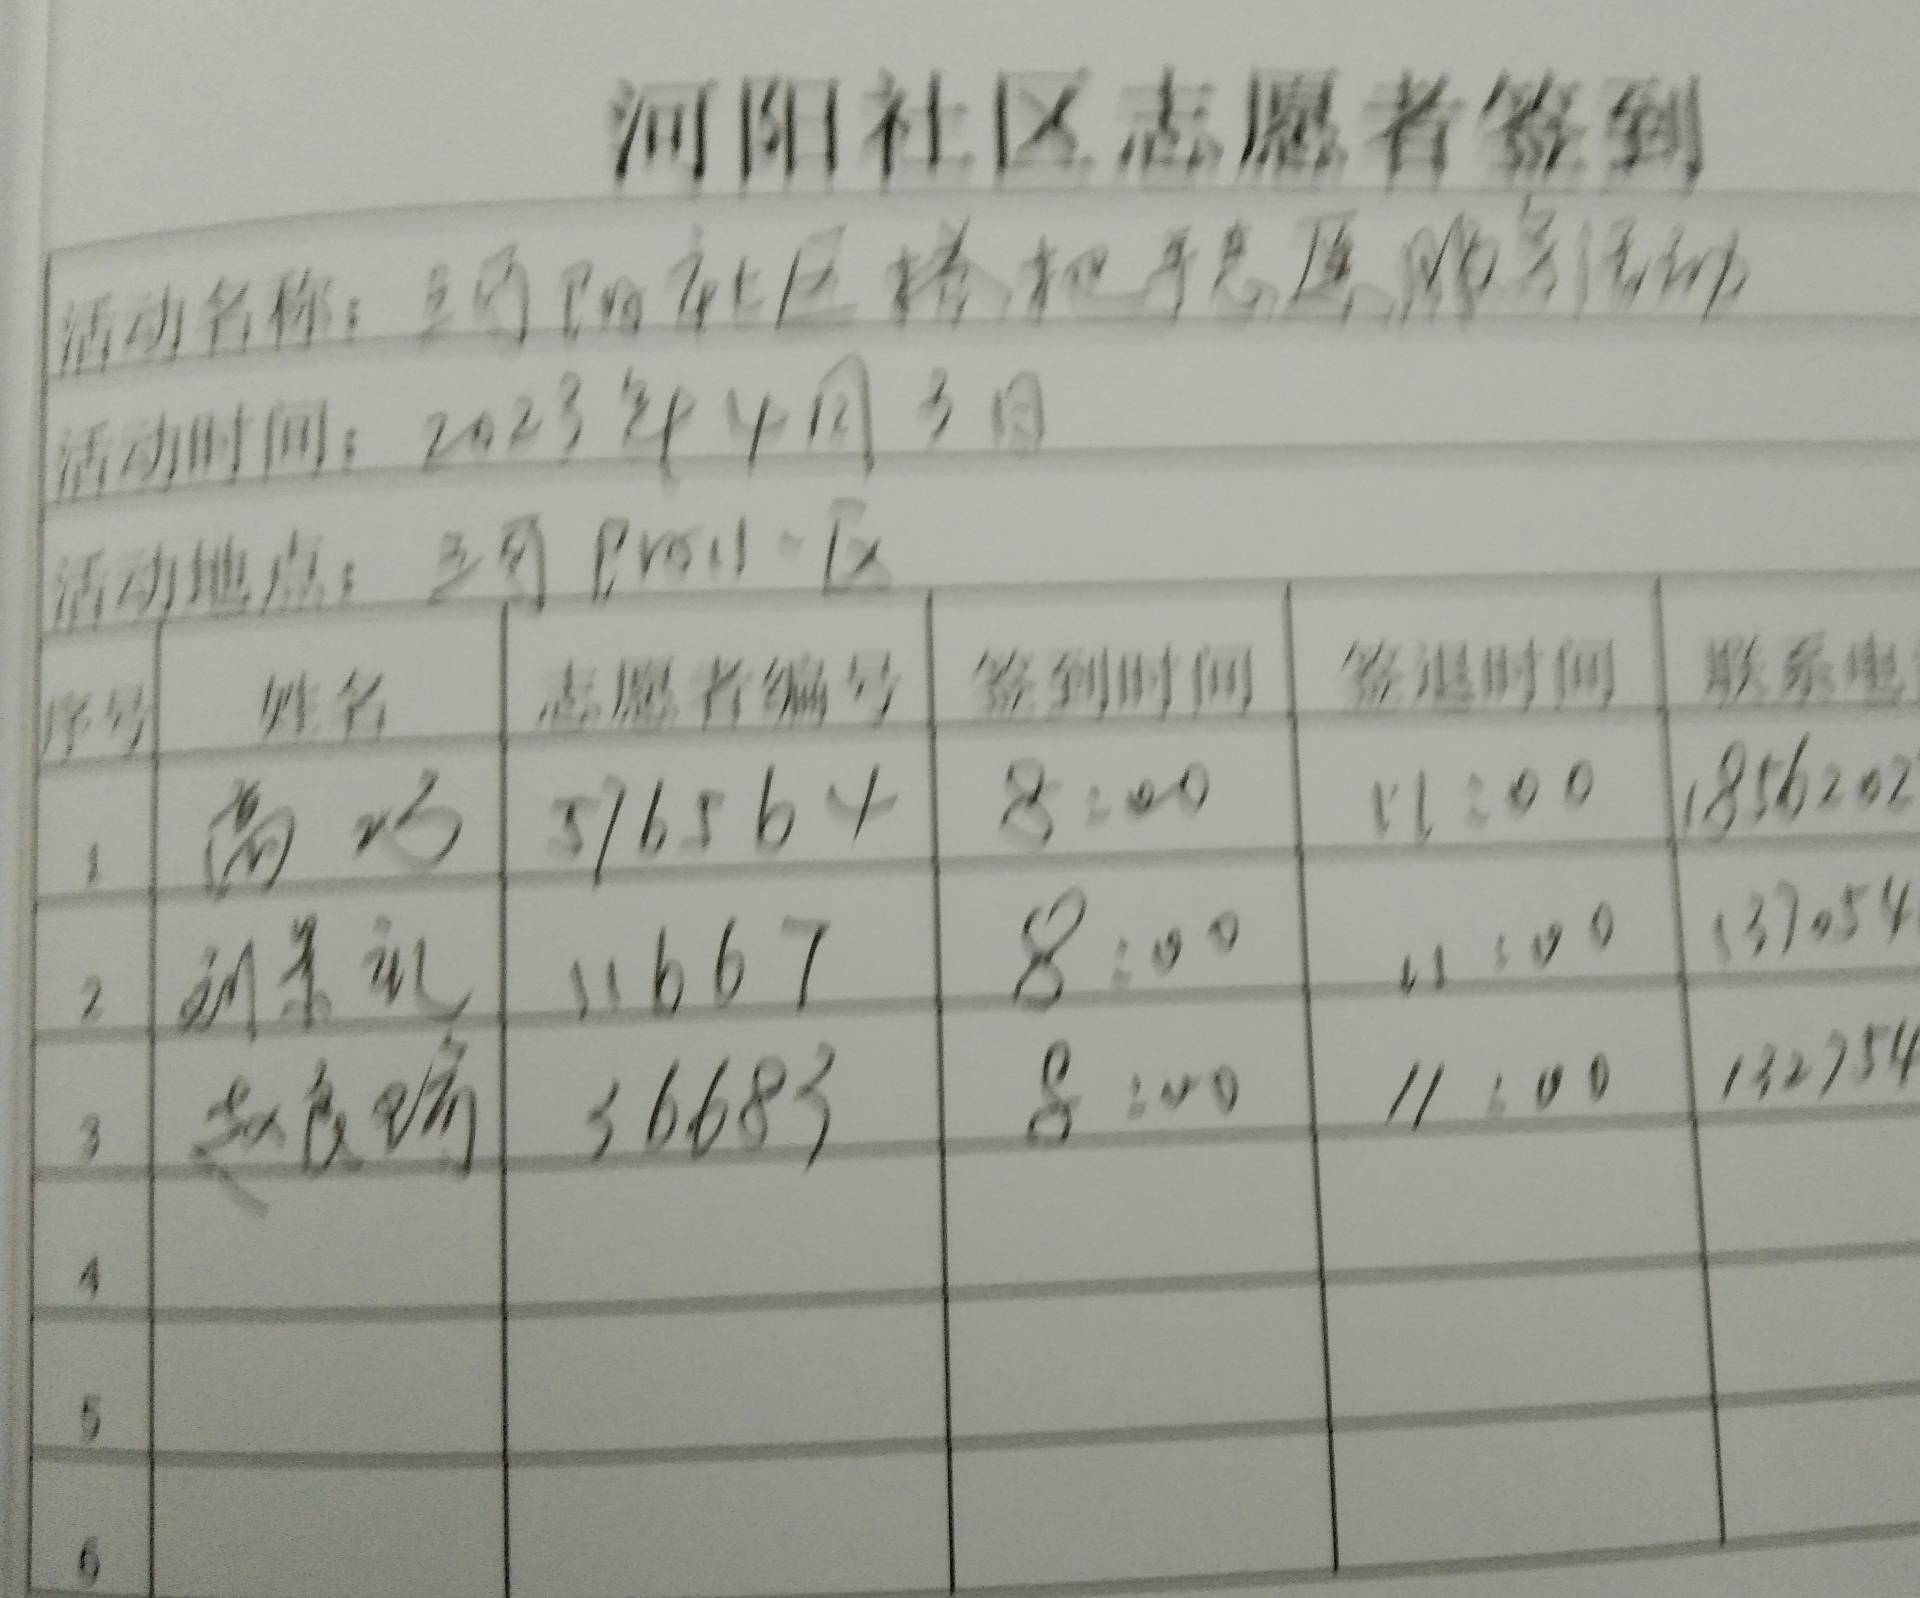 河阳社区志愿者签到
活动名称：河阳社区搭把手志愿服务活动
活动时间：2023年4月3日
活动地点：区
序号 姓名 志愿者编号 签到时间 签退时间 联系电
1 576564 8:00 11:00 1856202
2 刘景礼 11667 8:00 11:00 137054
3 赵良 36683 8:00 11:00 132754
4
5
6